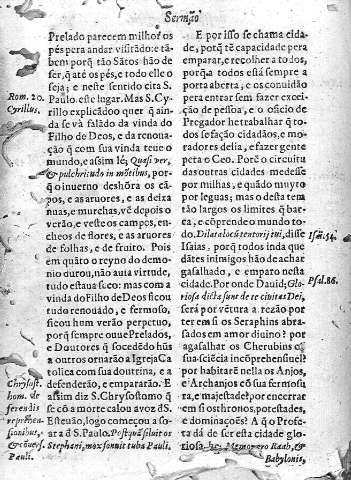 Sermaõ
Prelado parecem milhor os
pès pera andar visitãdo: e tã-
bem porq̃ tẽ Sãtos hão de
ser, q̃ atè os pès, e todo elle o
seja; e neste sentido cita S.
Paulo. este lugar. Mas S. Cy-
rillo explicãdo o quer q̃ ain-
da se và falãdo da vinda do
Filho de Deos, e da renoua-
ção q̃ com sua vinda teue o
mundo, e assim lé; Quasi ver,
& pulchritudo in mõtibus, por-
q̃ o inuerno deshòra os cã-
pos, e as aruores, e as deixa
nuas, e murchas, vẽ depois o
verão, e veste os campos, en-
cheos de flores, e as aruores
de folhas, e de fruito. Pois
em quãto o reyno do demo-
nio durou, não auia virtude,
tudo estaua seco: mas com a
vinda do Filho de Deos ficou
tudo renouado, e fermoso,
ficou hum verão perpetuo,
porq̃ sempre ouue Prelados,
e Doutores q̃ socedẽdo hũs
a outros ornarão a Igreja Ca
tolica com sua doutrina, e a
defenderão, e empararão. E
assim diz S. Chrysostomo q̃
se cõ a morte calou a voz dS.
Esteuão, logo começou a so-
ar a d S. Paulo. Postquã siluit os
Stephani, mox sonuit tuba Pauli.
Rom. 20.
Cyrillus.
Chrysost.
hom. de
ferendis
reprehen-
sionibus,
& cõvers.
Pauli.
E por isso se chama cida-
de, porq̃ tẽ capacidade pera
emparar, e recolher a todos,
porq̃ a todos està sempre a
porta aberta; e os conuidão
pera entrar sem fazer excei-
ção de pessoa, e o oficio de
Pregador he trabalhar q̃ to-
dos se fação cidadãos, e mo-
radores della, e fazer gente
pera o Ceo. Porẽ o circuitu
das outras cidades medesse
por milhas, e quãdo muyto
por leguas; mas o desta tem
tão largos os limites q̃ bar-
ca, e cõprende o mundo to-
do. Dilata locũ tentorij tui, disse
Isaias. porq̃ todos inda que
dãtes inimigos hão de achar
gasalhado, e emparo nesta
cidade. Por onde Dauid; Glo-
riosa dicta sunt de te ciuitas Dei,
serà por vẽtura a rezão por
ter em si os Seraphins abra-
sados em amor diuino? por
agasalhar os Cherubins cõ
sua sciẽcia incõprehensiuel?
por habitarẽ nella os Anjos,
e Archanjos cõ sua fermosu
ra, e majestade? por encerrar
em si os thronos, potestades,
e dominações? A q̃ o Profe-
ta dà de ser esta cidade glo-
riosa, he; Memor ero Raab, &
Babylonis,
Isai. 54.
Psal. 86.